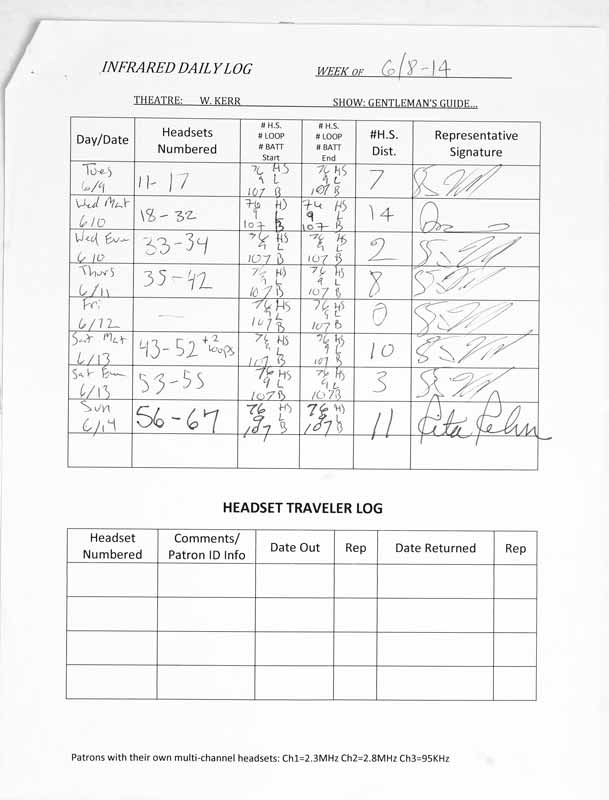 INFRARED DAILY LOG WEEK OF 6/8-14
THEATRE: W. KERR SHOW: GENTLEMAN'S GUIDE...
Day/Date Headsets Numbered # H.S. # LOOP # BATT Start # H.S. # LOOP # BATT End #H.S. Dist. Representative Signature
Tues 6/9 11-17 76 HS 9 L 107 B 76 HS 9 L 107 B 7
Wed Mat 6/10 18-32 76 HS 9 L 107 B 76 HS 9 L 107 B 14
Wed Eve 6/10 33-34 76 HS 9 L 107 B 76 HS 9 L 107 B 2
Thurs 6/11 35-42 76 HS 9 L 107 B 76 HS 9 L 107 B 8
Fri 6/12 — 76 HS 9 L 107 B 76 HS 9 L 107 B 0
Sat Mat 6/13 43-52 +2 loops 76 HS 9 L 107 B 76 HS 9 L 107 B 10
Sat Eve 6/13 53-55 76 HS 9 L 107 B 76 HS 9 L 107 B 3
Sun 6/14 56-67 76 HS 9 L 107 B 76 HS 9 L 107 B 11 Rita
HEADSET TRAVELER LOG
Headset Numbered Comments/ Patron ID Info Date Out Rep Date Returned Rep
Patrons with their own multi-channel headsets: Ch1=2.3MHz Ch2=2.8MHz Ch3=95KHz